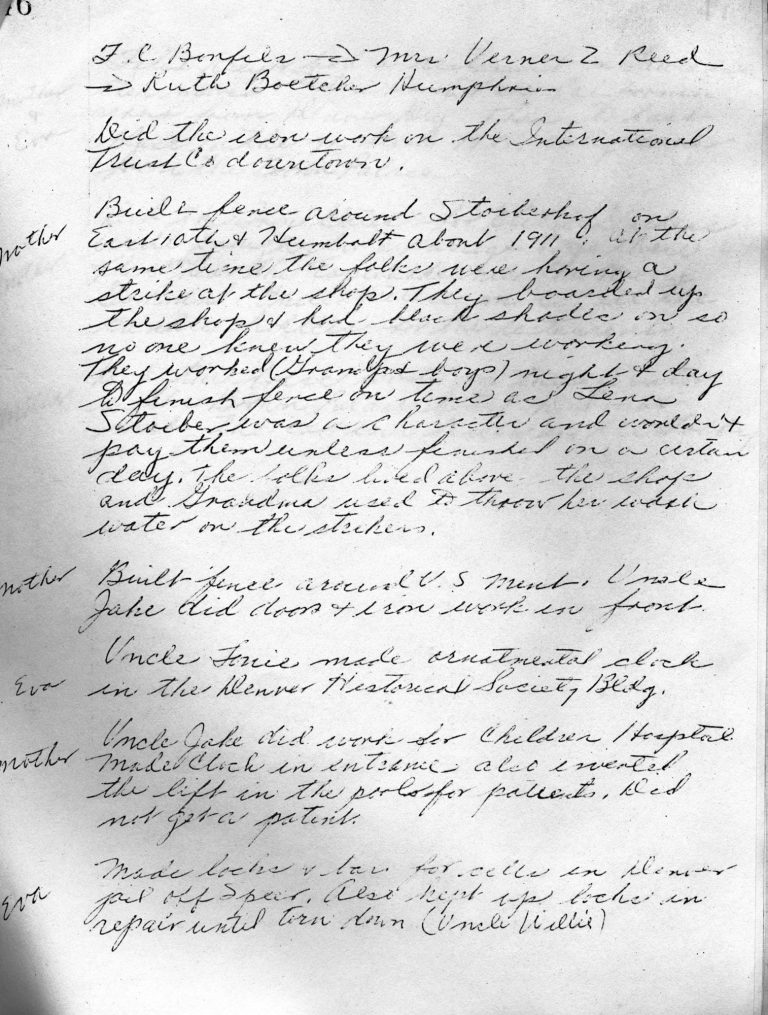 16
F. C Bonfils → Mrs Verner Z Reed
→ Ruth Boetcher Humphries
Did the iron work on the International
Trust Co downtown.
Built fence around Stoiberhof on
Mother East 10th & Humbolt about 1911. at the
same time the folks were having a
strike at the shop. They boarded up
the shop & had black shades on so
no one knew they were working.
They worked (Grampa & boys) night & day
to finish fence on time as Lena
Stoiber was a character and wouldn't
pay them unless finished on a certain
day. The folks lived above the shop
and Grandma used to throw her wash
water on the strikers.
Mother Built fence around U.S Mint. Uncle
Jake did doors & iron work in front.
Uncle Tonie made ornatmental clock
Eva in the Denver Historical Society Bldg.
Uncle Jake did work for Children Hospital
Mother Made Clock in entrance also invented
the lift in the pools for patients. Did
not get a patent.
Made locks & bars for cells in Denver
Eva jail off Speer. Also kept up locks in
repair until torn down (Uncle Willie)